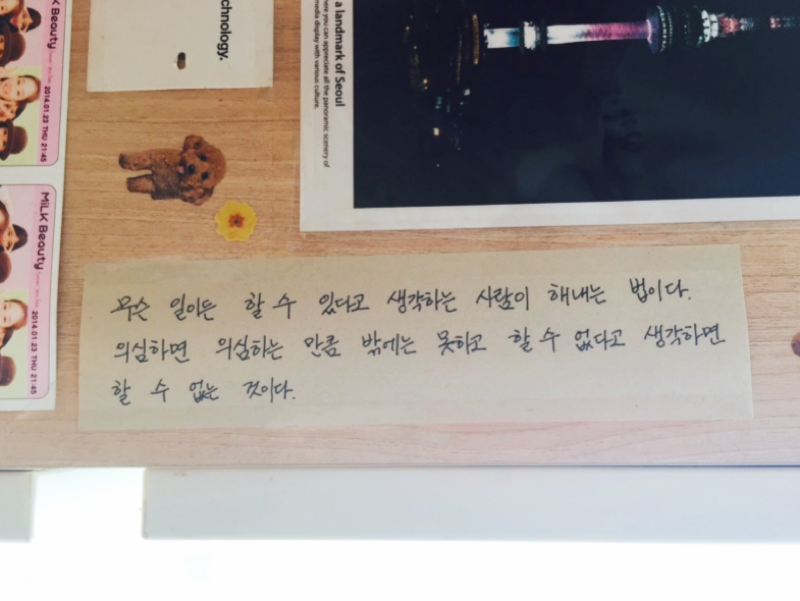 MiLK Beauty
2014.01.23 THU 21:45
MiLK Beauty
2014.01.23 THU 21:45
chnology.
a landmark of Seoul
here you can appreciate all the panoramic scenery of
media display with various culture.
무슨 일이든 할 수 있다고 생각하는 사람이 해내는 법이다.
의심하면 의심하는 만큼 밖에는 못하고 할 수 없다고 생각하면
할 수 없는 것이다.